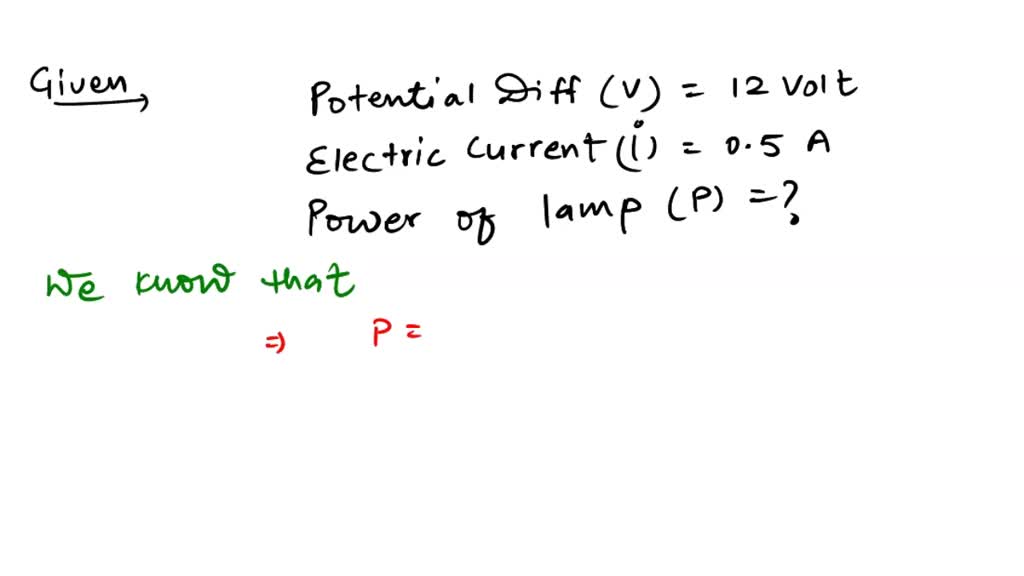 Given
Potential Diff (V) = 12 Volt
Electric Current (i) = 0.5 A
Power of lamp (P) = ?
We know that
⇒ P =